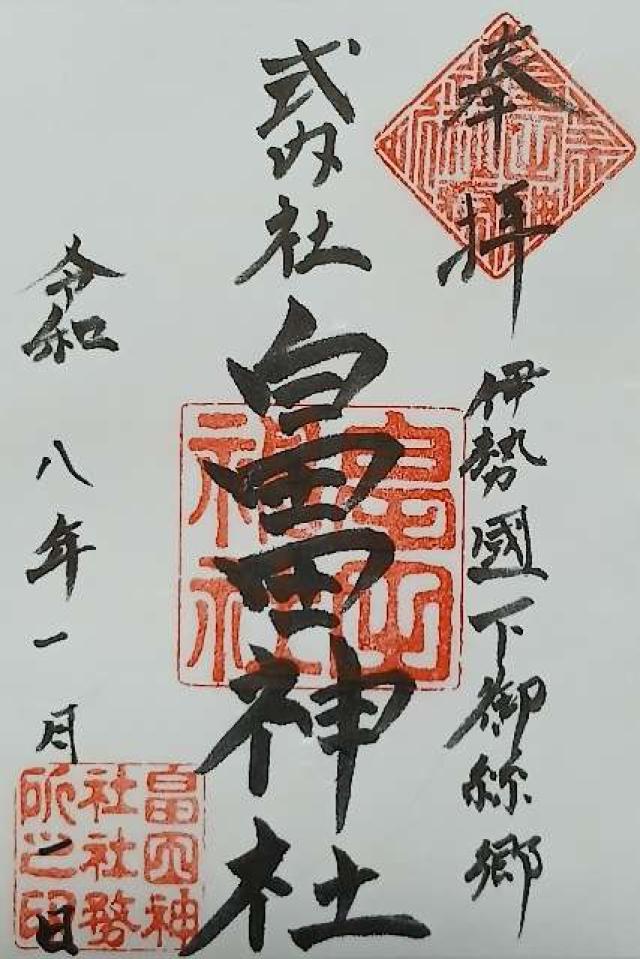 奉拝
伊勢國下御糸郷
式内社
畠田神社
令和八年一月一日
畠田神社
畠田神社社務所之印